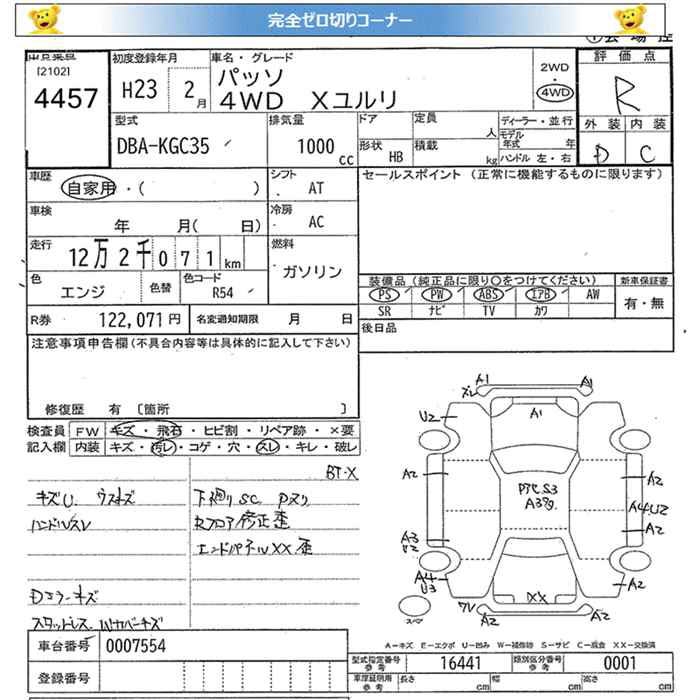 完全ゼロ切りコーナー
[2102]
4457
初度登録年月
H23 2月
車名・グレード
パッソ
4WD Xユルリ
2WD
・
4WD
評価点
R
外装 内装
D C
型式
DBA-KGC35
排気量
1000 cc
ドア
形状 HB
定員 人
積載 kg
ディーラー・並行
モデル年式 年
ハンドル 左・右
車歴
自家用・( )
シフト
AT
車検
年 月( 日)
冷房
AC
走行
12万2千071km
燃料
ガソリン
色
エンジ
色替
色コード
R54
R券 122,071円
名変通知期限 月 日
セールスポイント (正常に機能するものに限ります)
装備品 (純正品に限り○をつけてください)
新車保証書
PS PW ABS エアB AW
有・無
SR ナビ TV カワ
後日品
注意事項申告欄(不具合内容等は具体的に記入して下さい)
修復歴 有 〔箇所 〕
検査員 FW キズ・飛石・ヒビ割・リペア跡・×要
記入欄 内装 キズ・汚レ・コゲ・穴・スレ・キレ・破レ
BT-X
キズU. ウスキズ
ハンドルスレ
Dミラーキズ
下廻りSC Pヌリ
Rフロア修正歪
エンドパネルXX歪
A1
A1
U2
A1
A2
A2
A4U2
A2
A3
A4
U3
XX
A2
A2
A2
A-キズ E-エクボ U-凹み W-補修跡 S-サビ C-腐食 XX-交換済
車台番号 0007554
登録番号
型式指定番号 参考 16441
類別区分番号 参考 0001
車庫証明用 参考 長さ cm 幅 cm 高さ cm